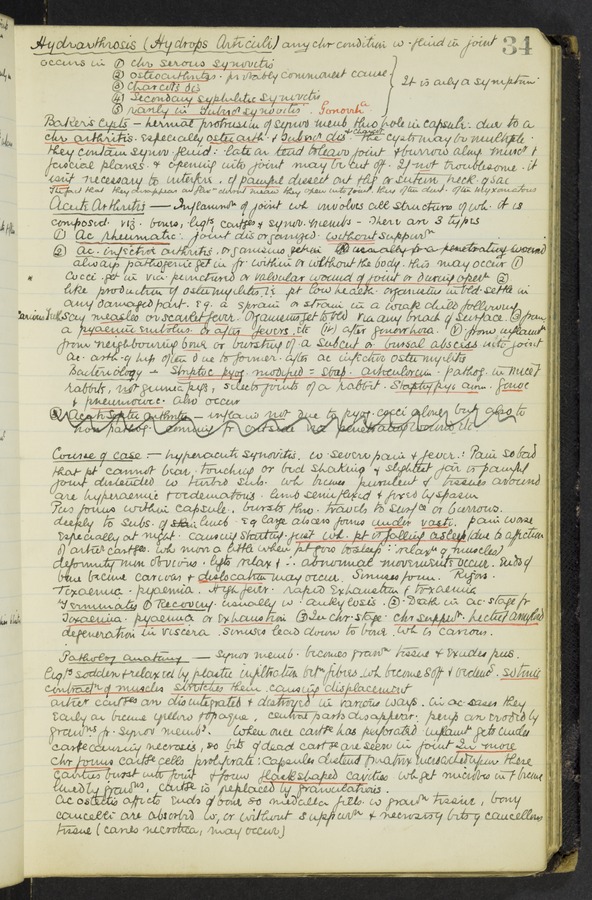 34
Hydrarthrosis (Hydrops Articuli) any chr condition w. fluid in joint
occurs in ① chr serous synovitis
② osteoarthritis. probably commonest cause
③ Charcots dis
④ Secondary syphilitic synovitis
⑤ rarely in Tubercr synovitis. Gonorrha
It is only a symptom
Bakers Cysts – hernial protrusion of synov memb thro hole in capsule. due to a
chr arthritis. especially osteoarth. & Tubercr dis & charcot The cysts may be multiple.
they contain synov fluid: later on tend to leave joint & burrow along muscs &
fascial planes. & opening into joint may be cut off. If not troublesome. it
isnt necessary to interfere. if painful dissect out the or suture neck of sac
Acute Arthritis — Inflammn of joint wh involves all structures of wh. it is
composed. viz. bones, ligts cartges & synov. membs – There are 3 types
① Ac rheumatic: joint disorganized. without suppurn
② Ac. infective arthritis. organisms get in usually fr a penetrating wound
always pathogenic get in fr. within or without the body. this may occur ①
Cocci get in via punctured or valvular wound of joint or during opert ②
like production of osteomyelitis, ie pt low health. organisms in bld. settle in
any damaged part. e.g. a sprain or strain in a weak child following
say measles or scarlet fever. Organisms get to bld via any breach of surface. ③ from
a pyaemic embolus. or after fevers etc ④ after gonorrhoea. ⑤ from inflamt
from neighbouring bone or bursting of a subcut or bursal abscess into joint
Ac. arth. of hip often due to former. after ac infective osteomyelitis
Bacteriology – Streptoc pyog. modified = strep. articulorum. pathog. in mice &
rabbits, not guinea pigs, selects joints of a rabbit. Staph pyx aur. Gonoc
& pneumococc. also occur
③ Acute Septic arthritis – inflamn not due to pyog. cocci alone, but also to
non pathog. coming fr outside via penetrating wound etc
Course of case – hyperacute synovitis. w severe pain & fever: Pain so bad
that pt cannot bear touching or bed shaking & slightest jar is painful
joint distended w turbid subs. wh becomes purulent & tissues around
are hyperaemic & oedematous. limb semiflexed & fixed by spasm
Pus forms within capsule. bursts thro. travels to surface or burrows.
deeply to subs. of limb. eg large abscess forms under vasti. pain worse
especially at night. causing starting just wh. pt is falling asleep (due to affection
of artic cartges. wh move a little when pt goes to sleep: relaxn of muscles)
deformity more obvious. ligts relax & ∴ abnormal movements occur. Ends of
bone become carious & dislocation may occur. Sinuses form. Rigors.
Toxaemia. pyaemia. High fever. rapid Exhaustion & toxaemia
Terminates ① Recovery usually w. ankylosis. ② Death in ac. stage fr
Toxaemia. pyaemia or exhaustion ③ In chr stage. chr suppurn. hectic amyloid
degeneration in viscera. Sinuses lead down to bone. wh is carious.
Patholog anatomy – synov memb. becomes granr tissue & exudes pus.
Ligts sodden & relaxed by plastic infiltration betn fibres. wh become soft & so tonic
contractn of muscles stretches them. causing displacement
artic cartges are disintegrated & destroyed in various ways. in ac. cases they
early on become yellow & opaque, central parts disappear: periph are eroded by
granns fr. synov membr. When once cartge has perforated inflamt gets under
cartge causing necrosis, so bits of dead cartge are seen in joint In more
chr forms cartge cells proliferate: capsules distend & matrix encroached upon these
cavities burst into joint & form flask shaped cavities wh get microbes in & become
lined by granns, cartge is replaced by granulations.
Ac osteitis affects ends of bone so medulla fills w grann tissue, bony
cancelli are absorbed w, or without suppurn & necrosing bits of cancellous
tissue (caries necrotica, may occur)